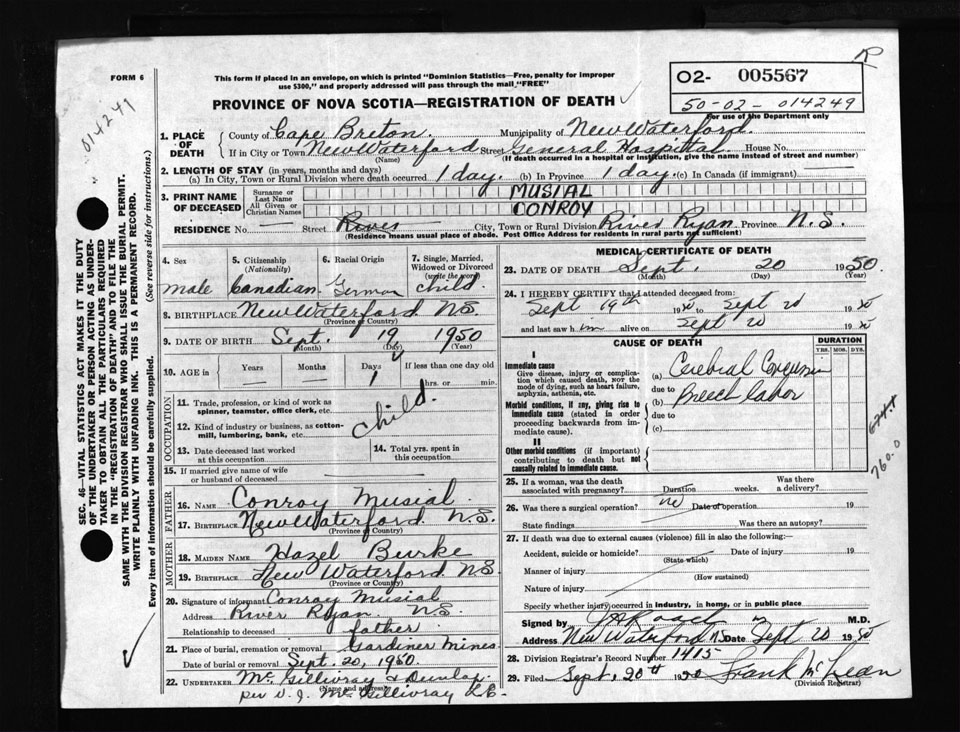 R
FORM 6
014249
This form if placed in an envelope, on which is printed "Dominion Statistics—Free, penalty for improper
use $300," and properly addressed will pass through the mail "FREE"
02- 005567
50-02-014249
For use of the Department only
PROVINCE OF NOVA SCOTIA—REGISTRATION OF DEATH
SEC. 46—VITAL STATISTICS ACT MAKES IT THE DUTY
OF THE UNDERTAKER OR PERSON ACTING AS UNDER-
TAKER TO OBTAIN ALL THE PARTICULARS REQUIRED
IN THE "REGISTRATION OF DEATH" AND TO FILE THE
SAME WITH THE DIVISION REGISTRAR WHO SHALL ISSUE THE BURIAL PERMIT.
WRITE PLAINLY WITH UNFADING INK. THIS IS A PERMANENT RECORD.
Every item of information should be carefully supplied. (See reverse side for instructions.)
1. PLACE OF DEATH
County of Cape Breton. Municipality of New Waterford.
If in City or Town New Waterford Street General Hospital. House No.
(Name) (If death occurred in a hospital or institution, give the name instead of street and number)
2. LENGTH OF STAY (in years, months and days)
(a) In City, Town or Rural Division where death occurred 1 day. (b) In Province 1 day. (c) In Canada (if immigrant)
3. PRINT NAME OF DECEASED
Surname or Last Name MUSIAL
All Given or Christian Names CONROY
RESIDENCE No. Street River City, Town or Rural Division River Ryan Province N.S.
(Residence means usual place of abode. Post Office Address for residents in rural parts not sufficient)
4. Sex male
5. Citizenship (Nationality) Canadian
6. Racial Origin German
7. Single, Married, Widowed or Divorced (write the word) Child
8. BIRTHPLACE New Waterford N.S.
(Province or Country)
9. DATE OF BIRTH Sept. 19 1950
(Month) (Day) (Year)
10. AGE in Years Months Days 1 If less than one day old hrs. or min.
OCCUPATION
11. Trade, profession, or kind of work as spinner, teamster, office clerk, etc.
12. Kind of industry or business, as cotton-mill, lumbering, bank, etc.
Child.
13. Date deceased last worked at this occupation
14. Total yrs. spent in this occupation
15. If married give name of wife or husband of deceased
FATHER
16. NAME Conroy Musial
17. BIRTHPLACE New Waterford N.S.
(Province or Country)
MOTHER
18. MAIDEN NAME Hazel Burke
19. BIRTHPLACE New Waterford NS
(Province or Country)
20. Signature of informant Conroy Musial
Address River Ryan N.S.
Relationship to deceased father
21. Place of burial, cremation or removal Gardiner Mines
Date of burial or removal Sept. 20, 1950
22. UNDERTAKER McGillivray & Dunlap
(Name and address)
per D. J. McGillivray
MEDICAL CERTIFICATE OF DEATH
23. DATE OF DEATH Sept. 20 1950
(Month) (Day) (Year)
24. I HEREBY CERTIFY that I attended deceased from:
Sept 19th 1950 to Sept 20 1950
and last saw him alive on Sept 20 1950
CAUSE OF DEATH
DURATION
YRS. MOS. DYS.
I
Immediate cause
Give disease, injury or complication which caused death, NOT the mode of dying, such as heart failure, asphyxia, asthenia, etc.
(a) Cerebral
due to
Morbid conditions, if any, giving rise to immediate cause (stated in order proceeding backwards from immediate cause).
(b) Breech labor
due to
(c)
II
Other morbid conditions (if important) contributing to death but not causally related to immediate cause.
760.0
25. If a woman, was the death associated with pregnancy? Duration weeks. Was there a delivery?
26. Was there a surgical operation? no Date of operation 19
State findings Was there an autopsy?
27. If death was due to external causes (violence) fill in also the following:—
Accident, suicide or homicide? Date of injury 19
(State which)
Manner of injury
(How sustained)
Nature of injury
Specify whether injury occurred in industry, in home, or in public place
Signed by M.D.
Address New Waterford NS Date Sept 20 1950
28. Division Registrar's Record Number 1415
29. Filed Sept. 20th 1950 Frank McLean
(Division Registrar)